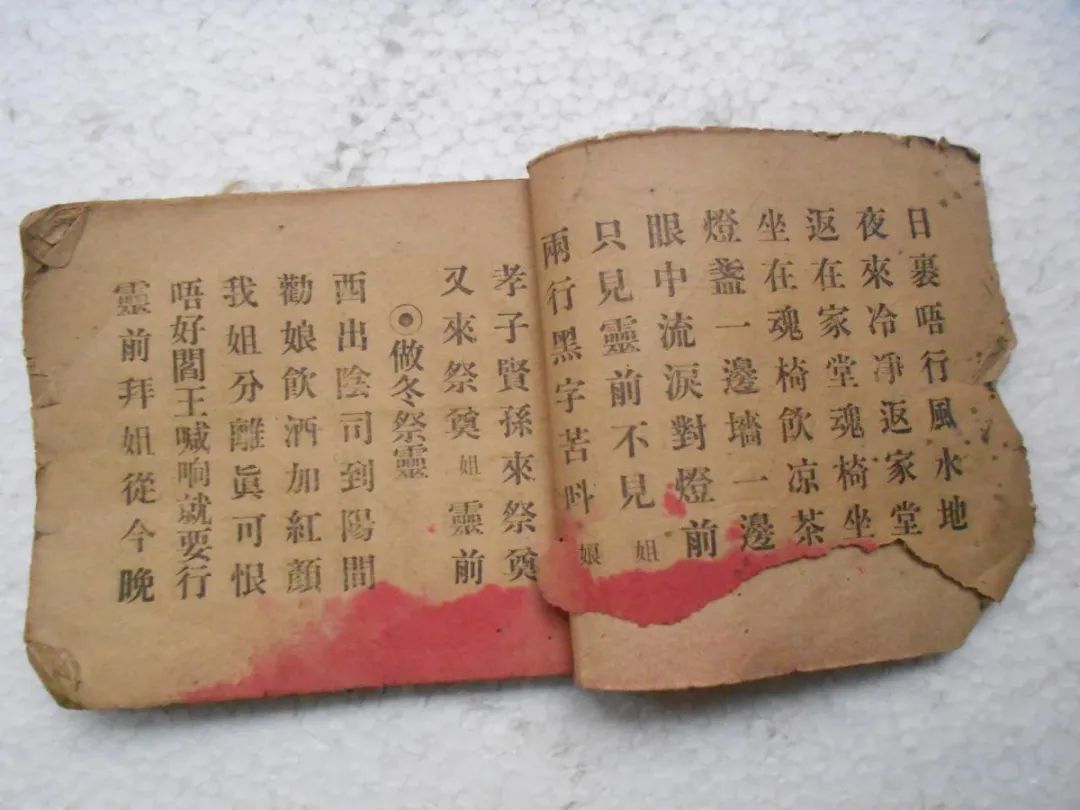 日裏唔行風水地
夜來冷凈返家堂
返在家堂魂椅坐
坐在魂椅飲凉茶
燈盞一邊墻一邊
眼中流淚對燈前
只見靈前不見姐
兩行黑字苦呌娘
孝子賢孫來祭奠
又來祭奠姐靈前
◉做冬祭靈
西出陰司到陽間
勸娘飲酒加紅顏
我姐分離眞可恨
唔好閻王喊晌就要行
靈前拜姐從今晚